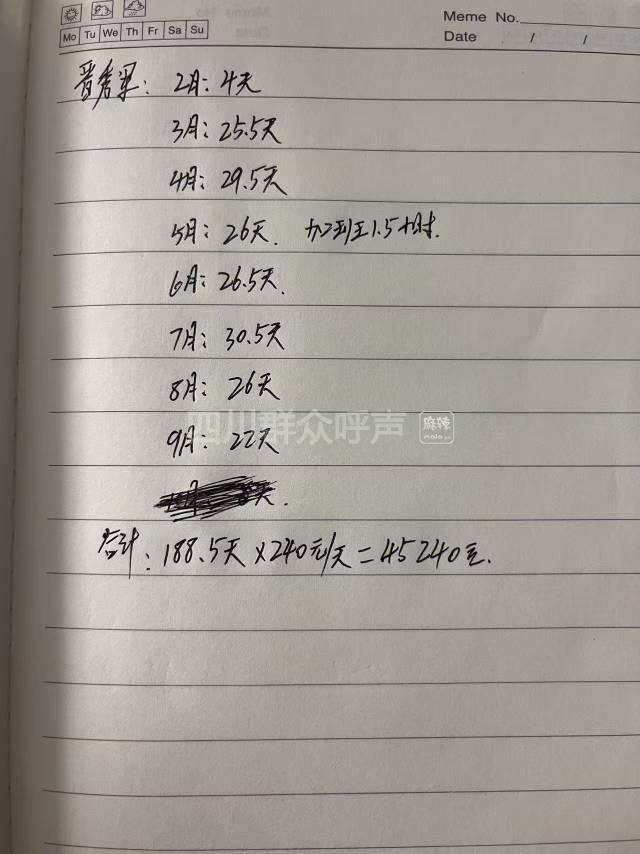 Meme No.
Date / /
Mo Tu We Th Fr Sa Su
晋秀军：2月：4天
3月：25.5天
4月：29.5天
5月：26天. 加班1.5小时.
6月：26.5天.
7月：30.5天
8月：26天
四川群众呼声 麻辣 mala.cn
9月：22天
合计：188.5天×240元/天=45240元.